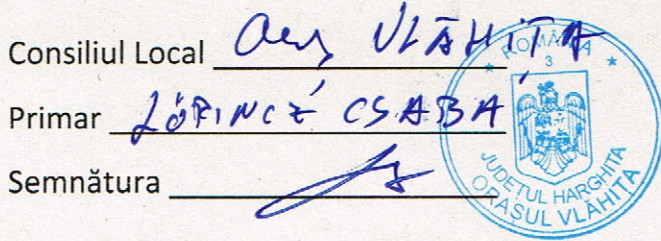 Consiliul Local Oraș VLĂHIȚA
Primar LŐRINCZ CSABA
Semnătura
ROMÂNIA
3
JUDEȚUL HARGHITA
ORAȘUL VLĂHIȚA